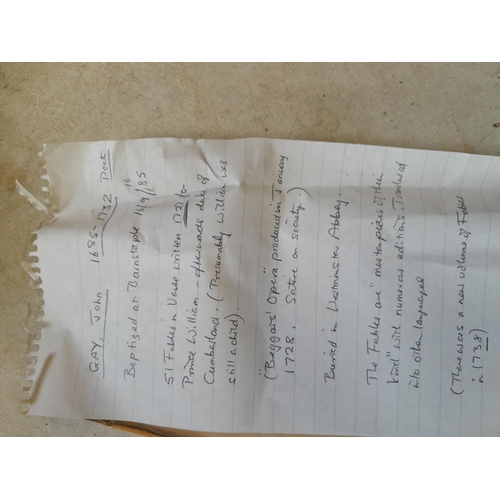 GAY, John 1685-1732 Poet
Baptized at Barnstaple 16/9/85
51 Fables in Verse written 1721 for
Prince William - afterwards duke of
Cumberland. (Presumably William was
still a child).
("Beggars' Opera" produced in January
1728. Satire on society.)
Buried in Westminster Abbey.
The Fables are "masterpieces of their
kind" with numerous editions. Translated
into other languages
(There was a new volume of Fables
in 1738)